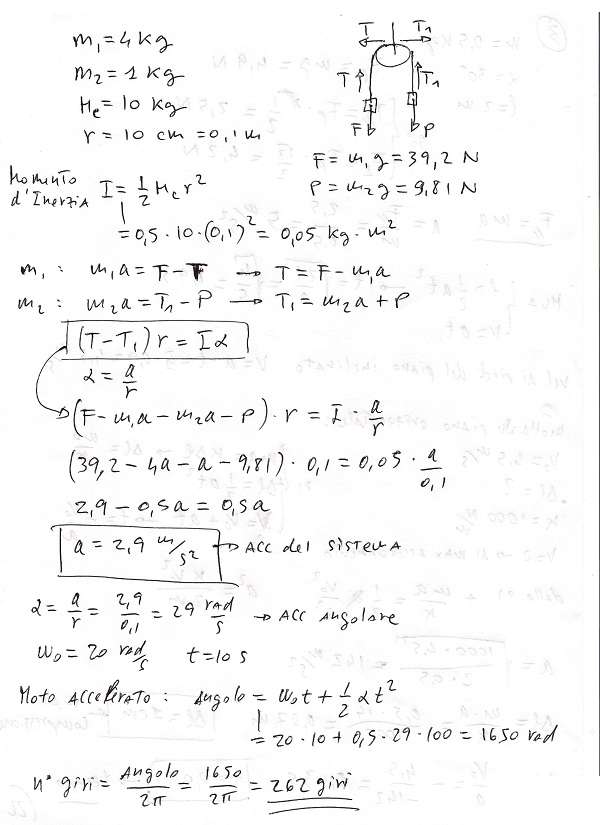 m₁ = 4 kg
m₂ = 1 kg
Mc = 10 kg
r = 10 cm = 0,1 m
T T₁
T T₁
F P
F = m₁g = 39,2 N
P = m₂g = 9,81 N
Momento d'Inerzia I = 1/2 Mc r²
= 0,5 · 10 · (0,1)² = 0,05 kg · m²
m₁ : m₁a = F - T → T = F - m₁a
m₂ : m₂a = T₁ - P → T₁ = m₂a + P
(T - T₁) r = Iα
α = a/r
(F - m₁a - m₂a - P) · r = I · a/r
(39,2 - 4a - a - 9,81) · 0,1 = 0,05 · a/0,1
2,9 - 0,5a = 0,5a
a = 2,9 m/s² → Acc del sistema
α = a/r = 2,9/0,1 = 29 rad/s → Acc Angolare
ω₀ = 20 rad/s t = 10 s
Moto Accelerato : Angolo = ω₀t + 1/2 αt²
= 20 · 10 + 0,5 · 29 · 100 = 1650 rad
n° giri = Angolo/2π = 1650/2π = 262 giri